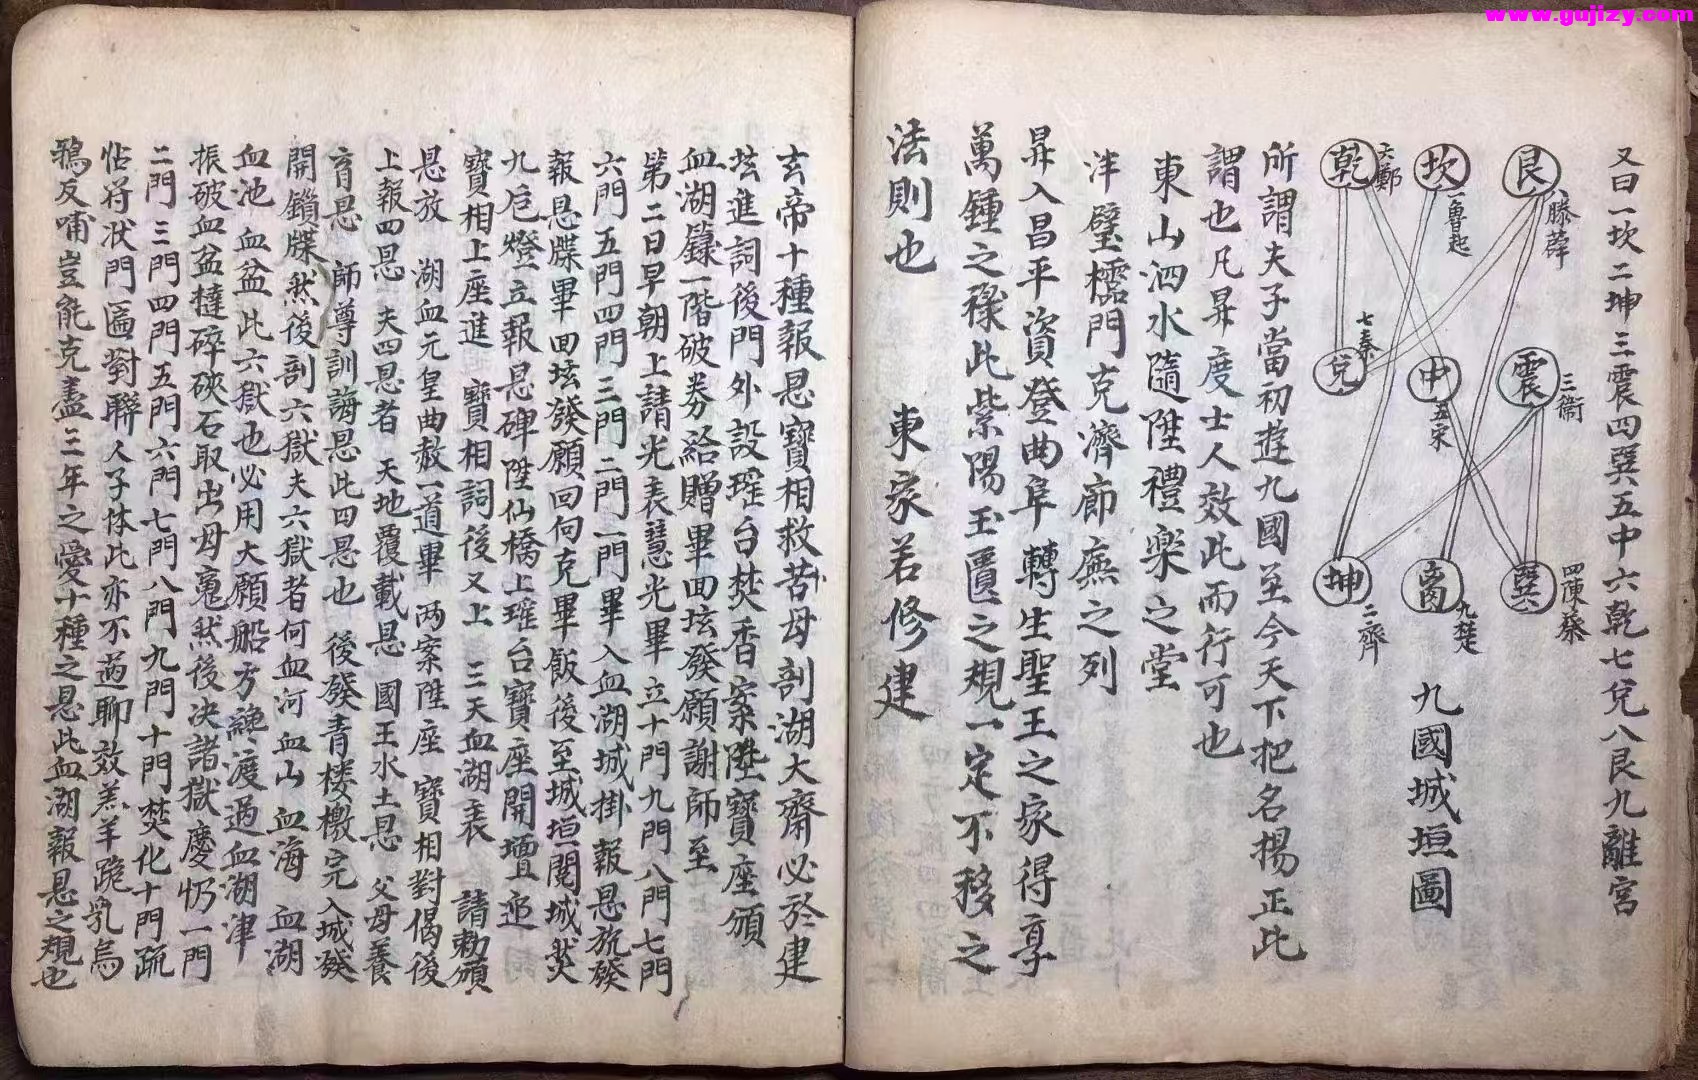 www.gujizy.com
又曰一坎二坤三震四巽五中六乾七兌八艮九離宮
艮
八滕薛
坎
一魯起
乾
六鄭
震
三衛
中
五宋
兌
七秦
巽
四陳蔡
离
九楚
坤
二齊
九國城垣圖
所謂夫子當初遊九國至今天下把名揚正此
謂也凡昇度士人效此而行可也
東山泗水隨陞禮樂之堂
泮璧櫺門克濟廊廡之列
昇入昌平資登曲阜轉生聖王之家得享
萬鍾之祿此紫陽玉匱之規一定不移之
法則也 東家若修建
玄帝十種報恩寶相救苦母剖湖大齋必於建
坛進詞後門外設璀台焚香案陞寶座頒
血湖籙一階破券給贈畢回坛發願謝師至
第二日早朝上請光表慧光畢立十門九門八門七門
六門五門四門三門二門一門畢入血湖城掛報恩旒發
報恩牒畢回坛發願回向克畢飯後至城垣関城焚
九卮燈立報恩碑陞仙橋上璀台寶座開壇迎
寶相上座進 寶相詞後又上 三天血湖表 請勅頒
恩放 湖血元皇曲赦一道畢 两案陞座 寶相對偈後
上報四恩 夫四恩者 天地覆載恩 國王水土恩 父母養
育恩 師尊訓誨恩此四恩也 後發青楼檄完入城發
開鎖牒然後剖六獄夫六獄者何血河血山 血海 血湖
血池 血盆此六獄也必用大願船方纔渡過血湖津
振破血盆撻碎硤石取出母䰟然後决諸獄慶忉一門
二門三門四門五門六門七門八門九門十門焚化十門疏
怗符狀門匾對聯人子体此亦不過聊效羔羊跪乳烏
鴉反哺豈能克盡三年之愛十種之恩此血湖報恩之規也